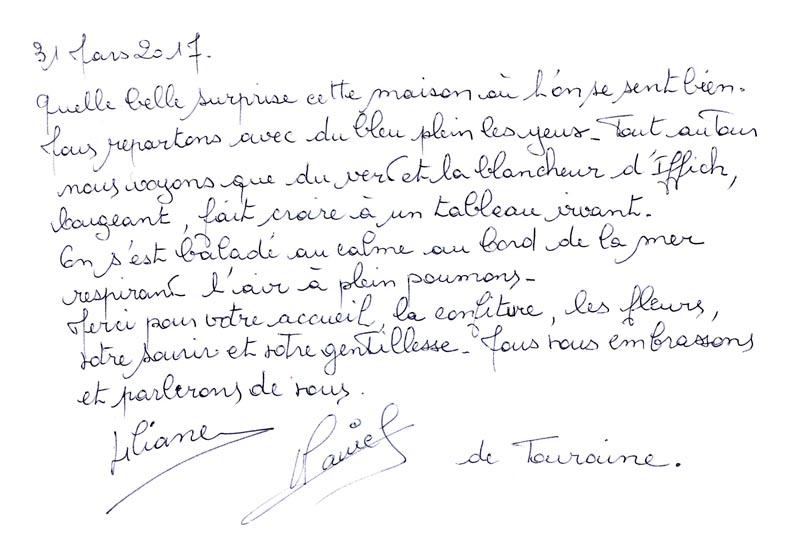 31 Mars 2017.
Quelle belle surprise cette maison où l'on se sent bien.
Nous repartons avec du bleu plein les yeux - Tout autour
nous voyons que du vert et la blancheur d'Iffich,
bougeant, fait croire à un tableau vivant.
On s'est baladé au calme au bord de la mer
respirant l'air à plein poumons -
Merci pour votre accueil, la confiture, les fleurs,
votre sourir et votre gentillesse - Nous vous embrassons
et parlerons de vous.
Liliane Daniel de Touraine.